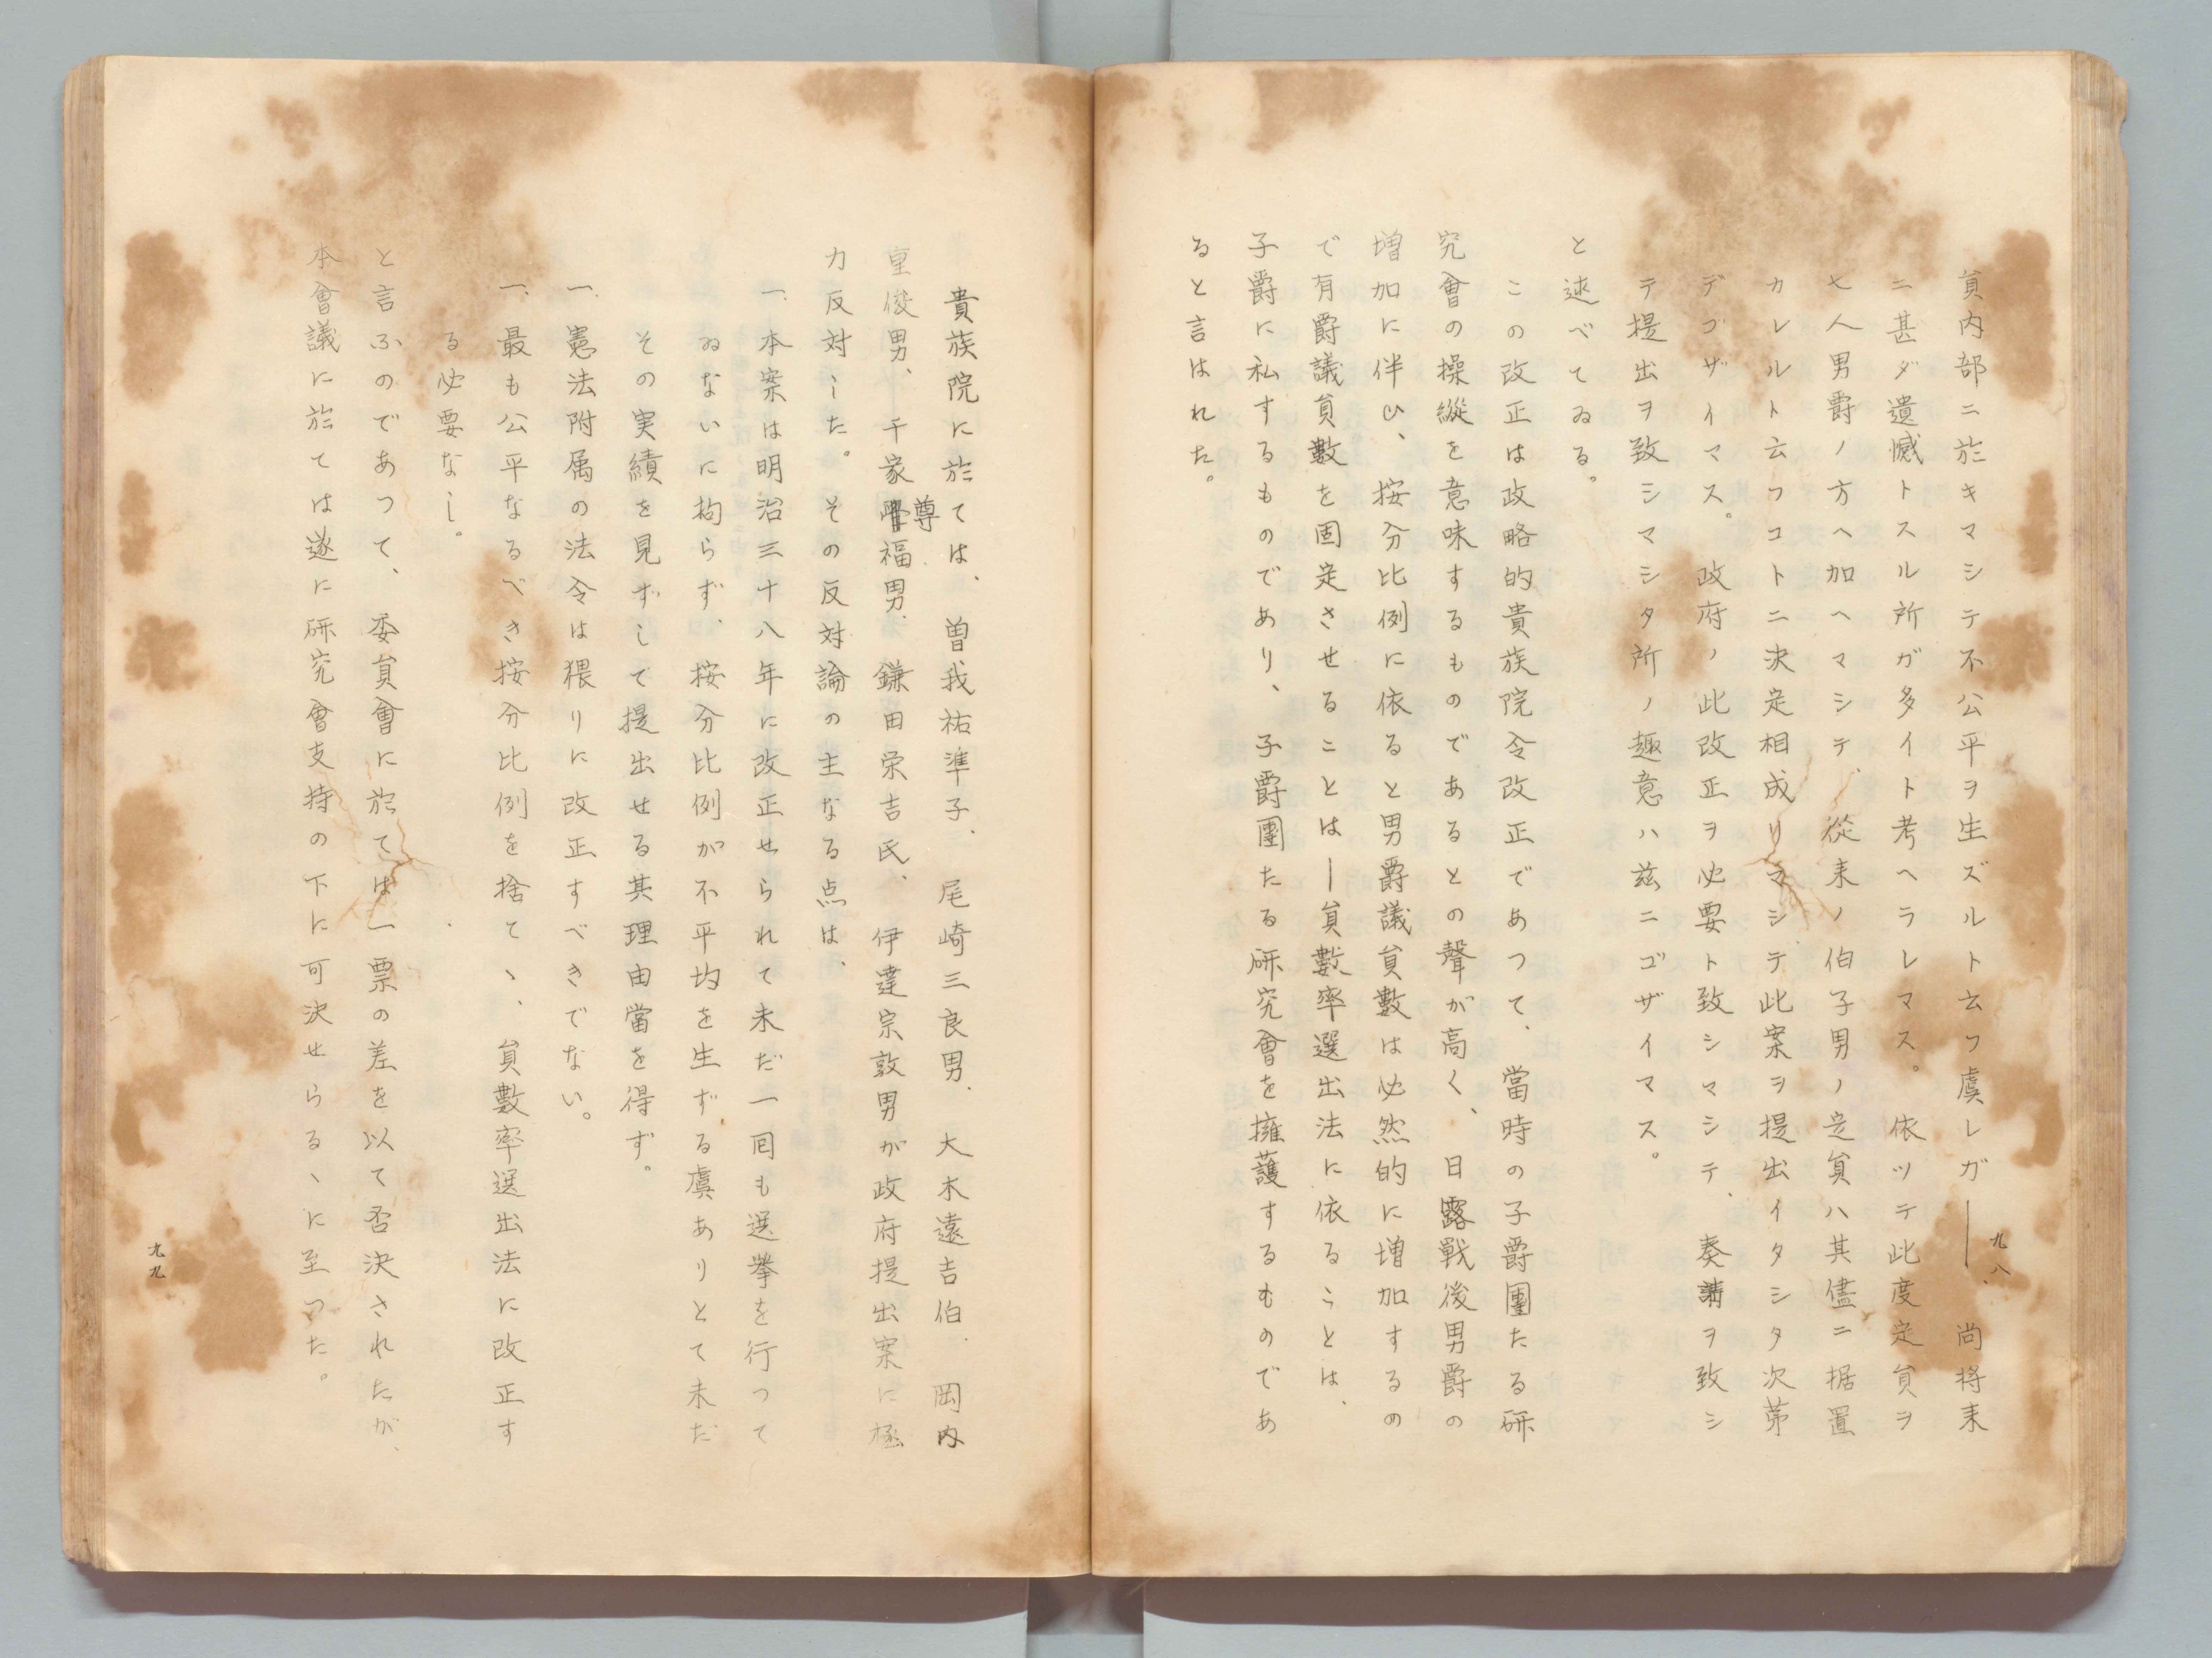 員内部ニ於キマシテ不公平ヲ生ズルト云フ虞レガ――尚将来
ニ甚ダ遺憾トスル所ガ多イト考ヘラレマス。依ツテ此度定員ヲ
七人男爵ノ方ヘ加ヘマシテ、従来ノ伯子男ノ定員ハ其儘ニ据置
カレルト云フコトニ決定相成リマシテ此案ヲ提出イタシタ次第
デゴザイマス。政府ノ此改正ヲ必要ト致シマシテ、奏請ヲ致シ
テ提出ヲ致シマシタ所ノ趣意ハ茲ニゴザイマス。
と述べてゐる。
この改正は政略的貴族院令改正であつて、當時の子爵團たる研
究會の操縦を意味するものであるとの聲が高く、日露戦後男爵の
増加に伴ひ、按分比例に依ると男爵議員數は必然的に増加するの
で有爵議員數を固定させることは―員數率選出法に依ることは、
子爵に私するものであり、子爵團たる研究會を擁護するものであ
ると言はれた。
九八
貴族院に於ては、曽我祐準子、尾崎三良男、大木遠吉伯、岡内
重俊男、千家尊福男、鎌田栄吉氏、伊達宗敦男が政府提出案に極
力反対した。その反対論の主なる点は、
一、本案は明治三十八年に改正せられて未だ一回も選挙を行つて
ゐないに拘らず、按分比例が不平均を生ずる虞ありとて未だ
その実績を見ずして提出せる其理由當を得ず。
一、憲法附属の法令は猥りに改正すべきでない。
一、最も公平なるべき按分比例を捨てゝ、員數率選出法に改正す
る必要なし。
と言ふのであつて、委員會に於ては一票の差を以て否決されたが、
本會議に於ては遂に研究會支持の下に可決せらるゝに至つた。
九九